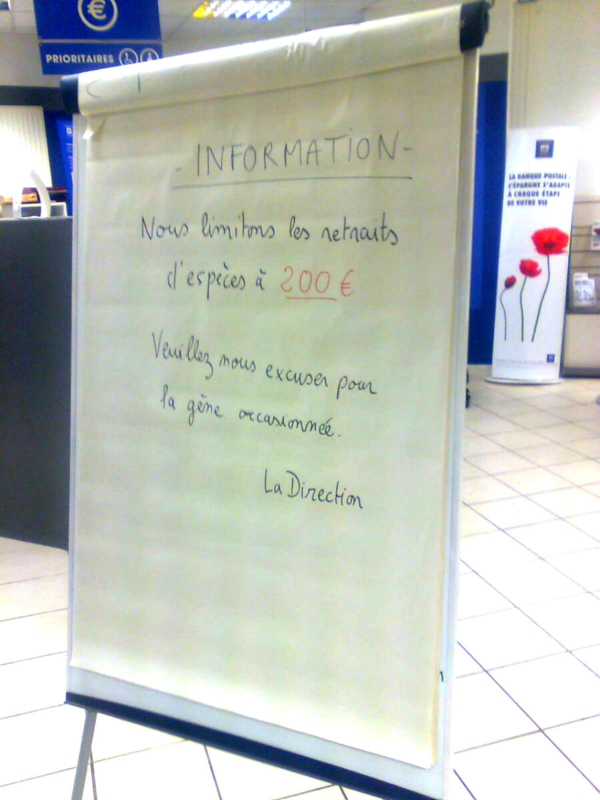 €
PRIORITAIRES
- INFORMATION -
Nous limitons les retraits
d'espèces à 200 €
Veuillez nous excuser pour
la gêne occasionnée.
La Direction
LA BANQUE POSTALE :
L'ÉPARGNE S'ADAPTE
À CHAQUE ÉTAPE
DE VOTRE VIE